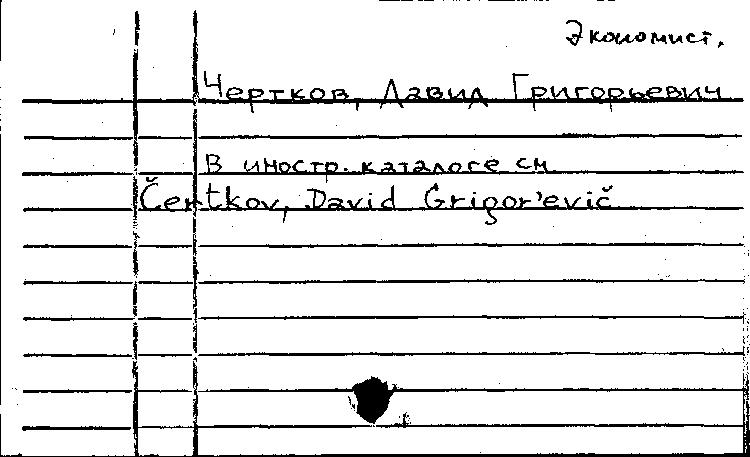 Экономист.
Чертков, Давид Григорьевич
В иностр. каталоге см
Čertkov, David Grigor'evič